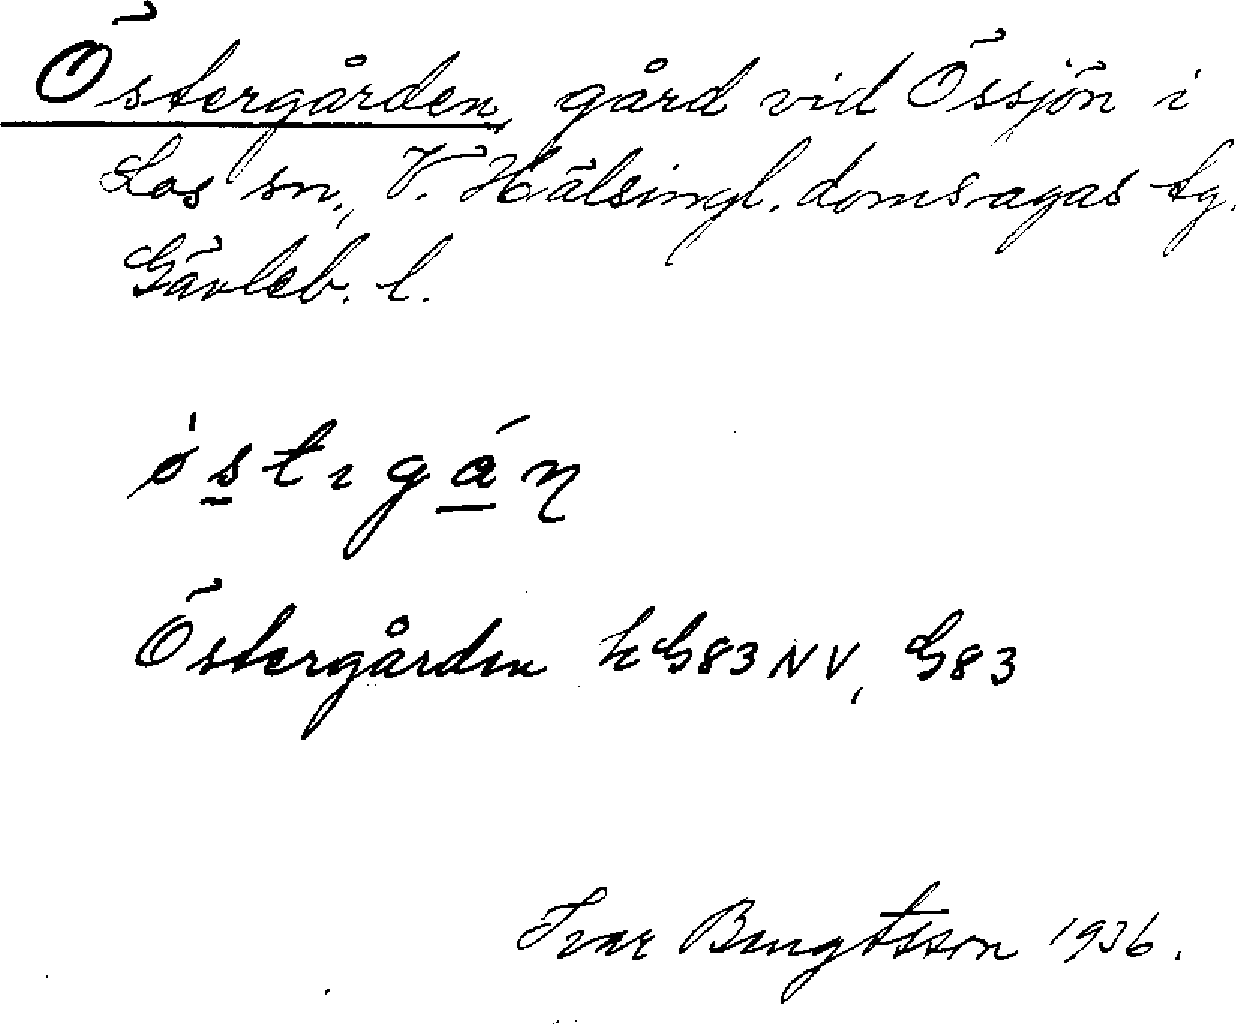 Östergården, gård vid Össjön i
Los sn., V. Hälsingl. domsagas tg.
Gävleb. l.
Östergården kG83NV, G83
Ivar Bengtsson 1936.